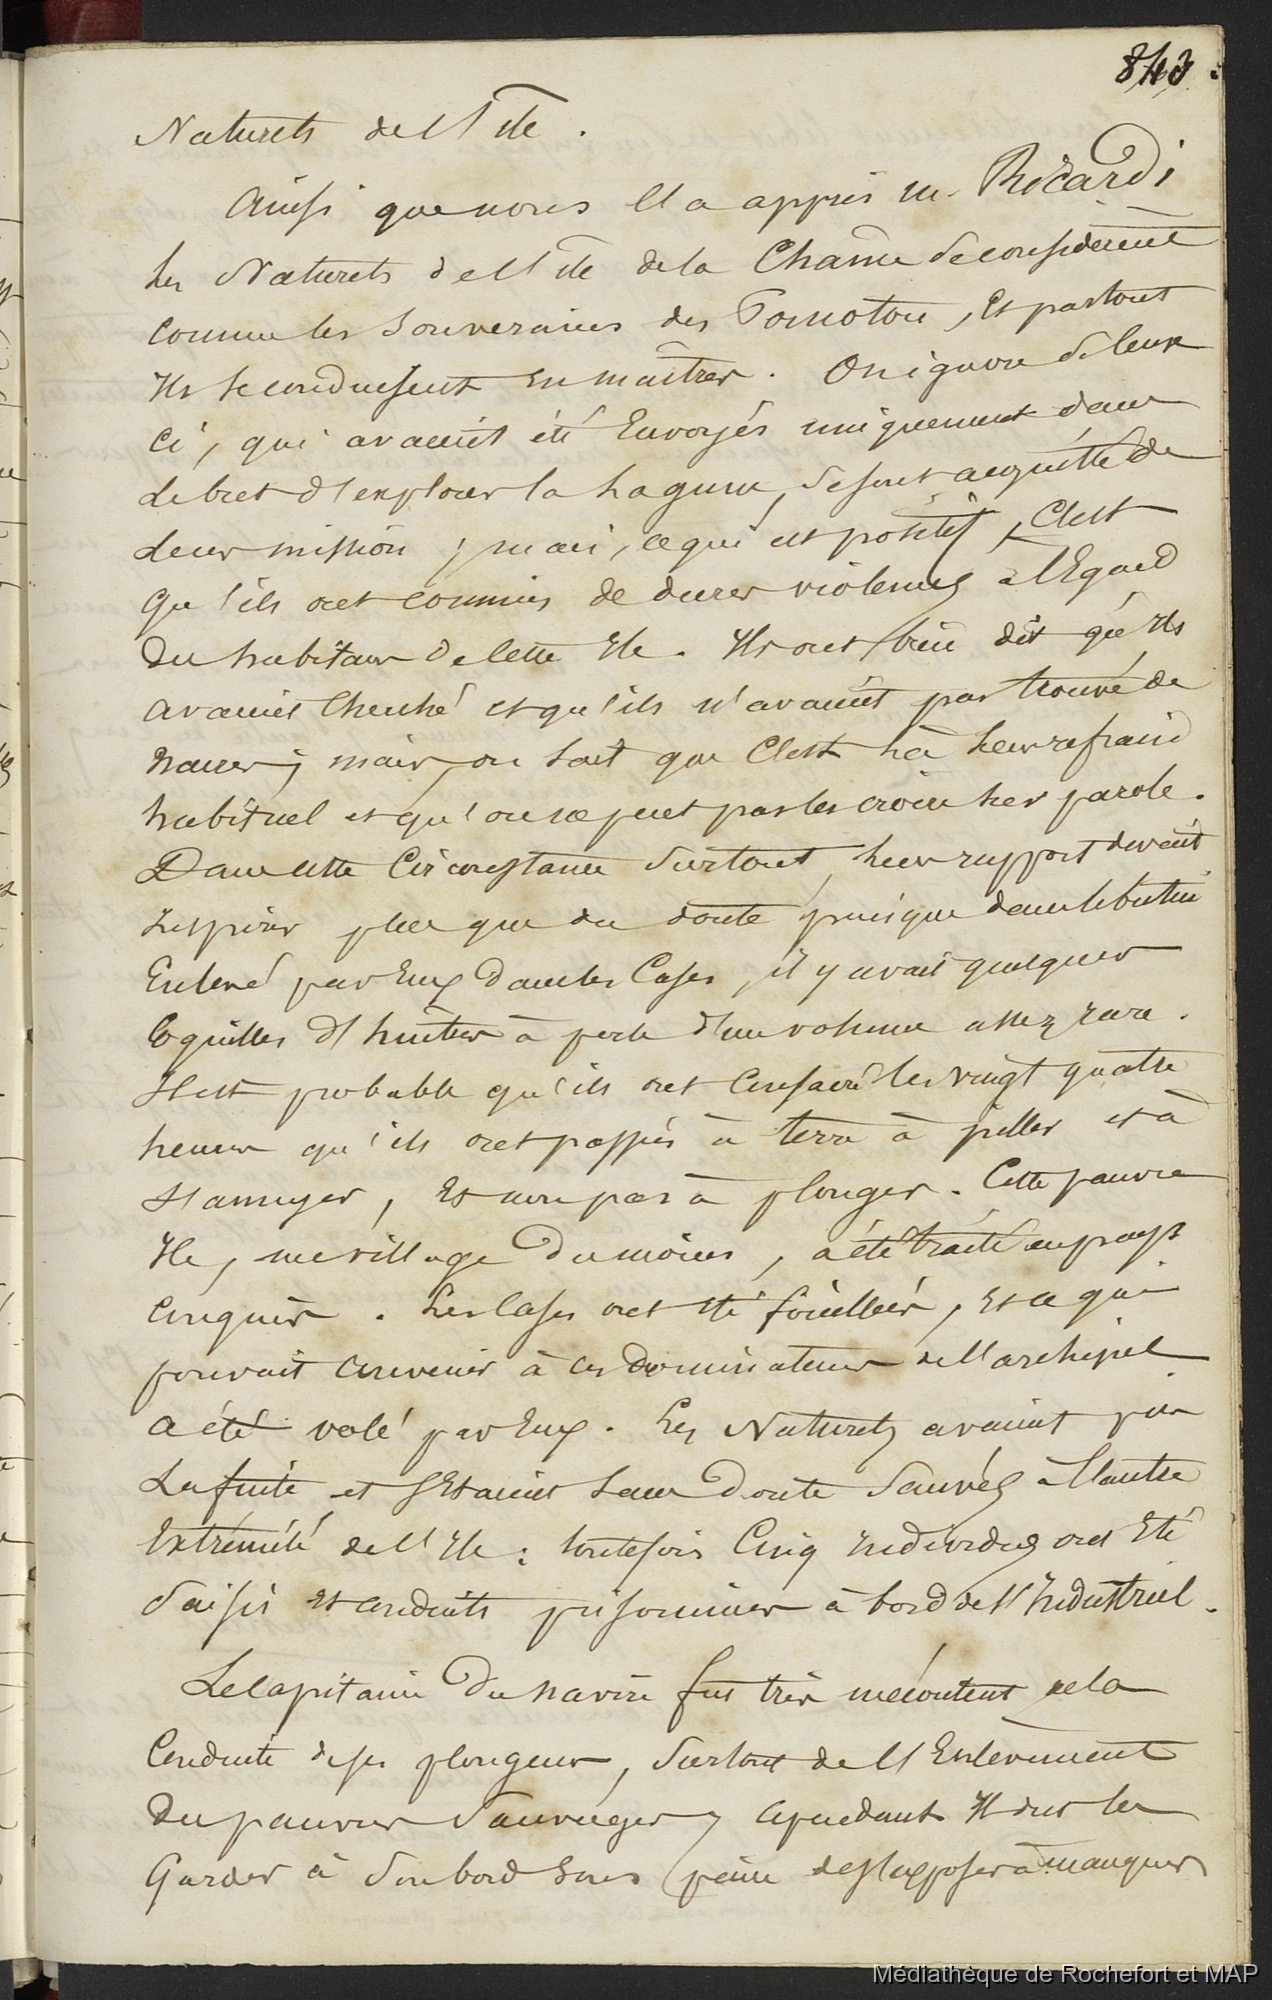 843.
Naturels de l'île.
Ainsi que nous l'a appris M. Ricardi
les Naturels de l'île de la Chaîne se considèrent
comme les Souverains des Pomotou, et partout
ils se conduisent en maîtres. On ignore si ceux
ci, qui avaient été Envoyés uniquement dans
le but d'explorer la Lagune, se sont acquittés de
leur mission ; mais, ce qui est positif, C'est
qu'ils ont commis de dures violences à l'Egard
des habitans de cette Ile. Ils ont bien dit qu'Ils
avaient Cherché et qu'ils n'avaient pas trouvé de
nacres ; mais, on sait que C'est là leur refrain
habituel et qu'on ne peut pas les croire sur parole.
Dans cette Circonstance surtout, leur rapport devait
inspirer plus que du doute puisque dans le butin
Enlevé par Eux dans les Cases, il y avait quelques
Coquilles d'huîtres à perle d'un volume assez rare.
Il est probable qu'ils ont Consacré les vingt quatre
heures qu'ils ont passées à terre à piller et à
s'amuser, Et non pas à plonger. Cette pauvre
Ile, ce village du moins, a été traité en pays
conquis. Les Cases ont été fouillées, Et ce qui
pouvait convenir à ces dominateurs de l'archipel
a été volé par Eux. Les Naturels avaient pris
la fuite et s'Etaient sans Doute Sauvés à l'autre
Extrémité de l'Ile : toutefois Cinq individus ont Eté
saisis et conduits prisonniers à bord de l'Industriel.
Le Capitaine du navire fut très mécontent de la
Conduite de ses plongeurs, surtout de l'Enlèvement
des pauvres Sauvages ; cependant Il dut les
Garder à son bord sous peine de s'exposer à manquer
Médiathèque de Rochefort et MAP